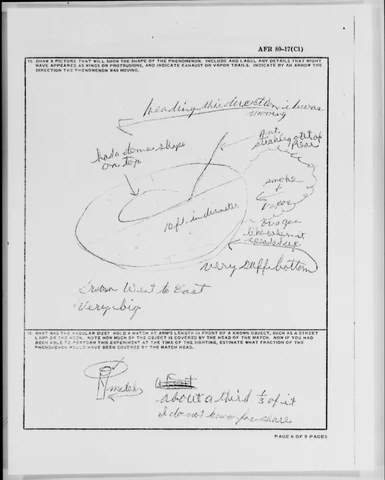 AFR 80-17(C1)
15. DRAW A PICTURE THAT WILL SHOW THE SHAPE OF THE PHENOMENON. INCLUDE AND LABEL ANY DETAILS THAT MIGHT
HAVE APPEARED AS WINGS OR PROTRUSIONS, AND INDICATE EXHAUST OR VAPOR TRAILS. INDICATE BY AN ARROW THE
DIRECTION THE PHENOMENON WAS MOVING.
heading this direction it was
moving
had dome shape
on top
sticking out of
rear
smoke
or
Vapor
10 ft in diameter
very ruff bottom
From West to East
Very big
16. WHAT WAS THE ANGULAR SIZE? HOLD A MATCH AT ARM'S LENGTH IN FRONT OF A KNOWN OBJECT, SUCH AS A STREET
LAMP OR THE MOON. NOTE HOW MUCH OF THE OBJECT IS COVERED BY THE HEAD OF THE MATCH. NOW IF YOU HAD
BEEN ABLE TO PERFORM THIS EXPERIMENT AT THE TIME OF THE SIGHTING, ESTIMATE WHAT FRACTION OF THE
PHENOMENON WOULD HAVE BEEN COVERED BY THE MATCH HEAD.
match
about a third 1/3 of it
I do not know for sure
PAGE 6 OF 9 PAGES